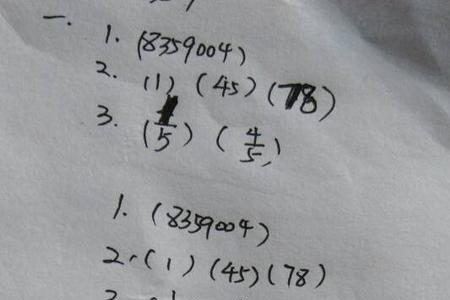 一.
1. (8359004)
2. (1) (45) (78)
3. (1/5) (4/5)
1. (8359004)
2. (1) (45) (78)